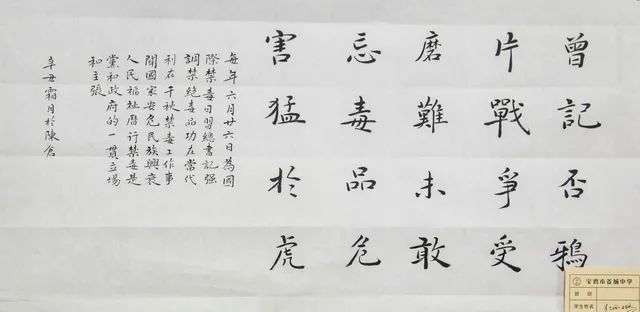 曾記否鴉
片戰爭受
磨難未敢
忘毒品危
害猛於虎
每年六月廿六日為國
際禁毒日習總書記强
調禁絕毒品功在當代
利在千秋禁毒工作事
關國家安危民族興衰
人民福祉厲行禁毒是
黨和政府的一貫立場
和主張
辛丑霜月於陳倉
宝鸡市
中学
班级
学生姓名